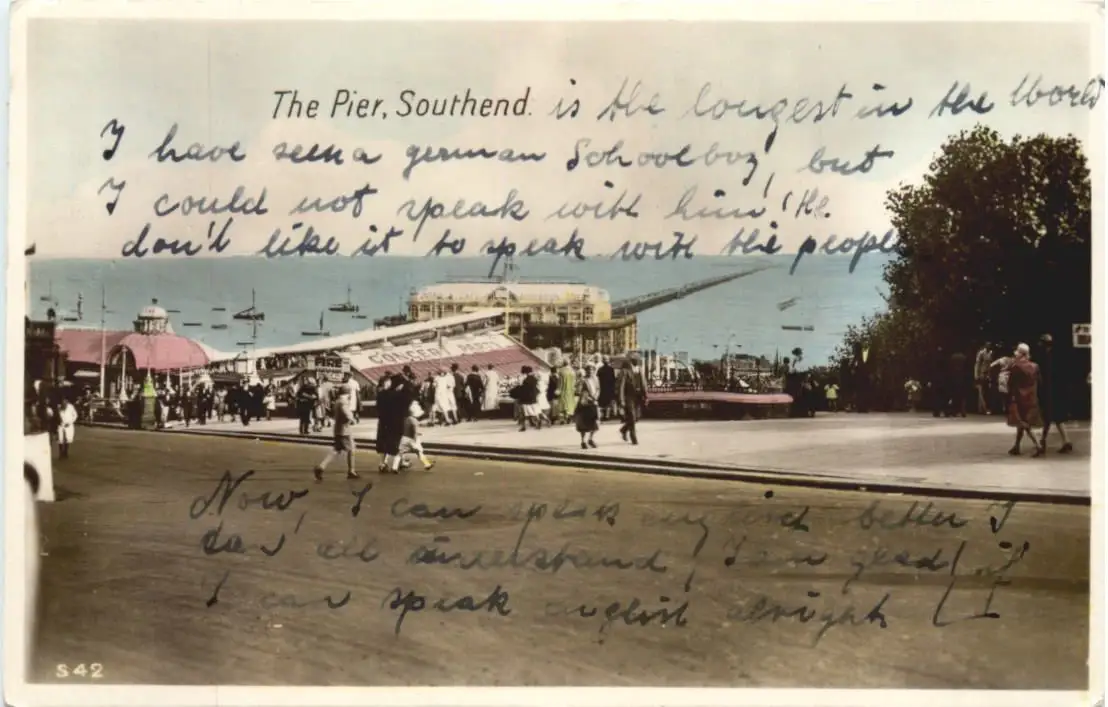 The Pier, Southend. is the longest in the World
I have seen a german Schoolboy, but
I could not speak with him! He
don't like it to speak with the people
CONCERT PARTY
Now, I can speak english better I
can all understand! I am glad! if
I can speak english alright
S42